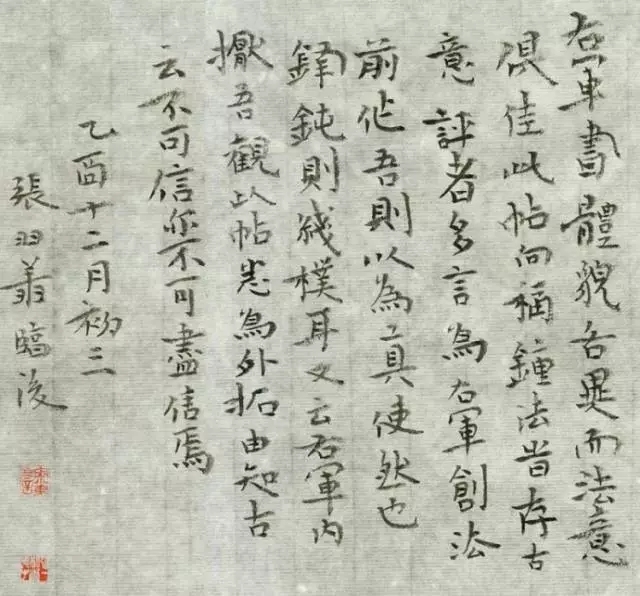 右軍書體貌各異而法意
俱佳此帖向稱鍾法昔存古
意評者多言為右軍創法
前作吾則以為真使然也
鋒鈍則綫樸耳又云右軍內
擫吾觀此帖悉為外拓由知古
云不可信亦不可盡信焉
乙酉十二月初三
張羽翔臨後